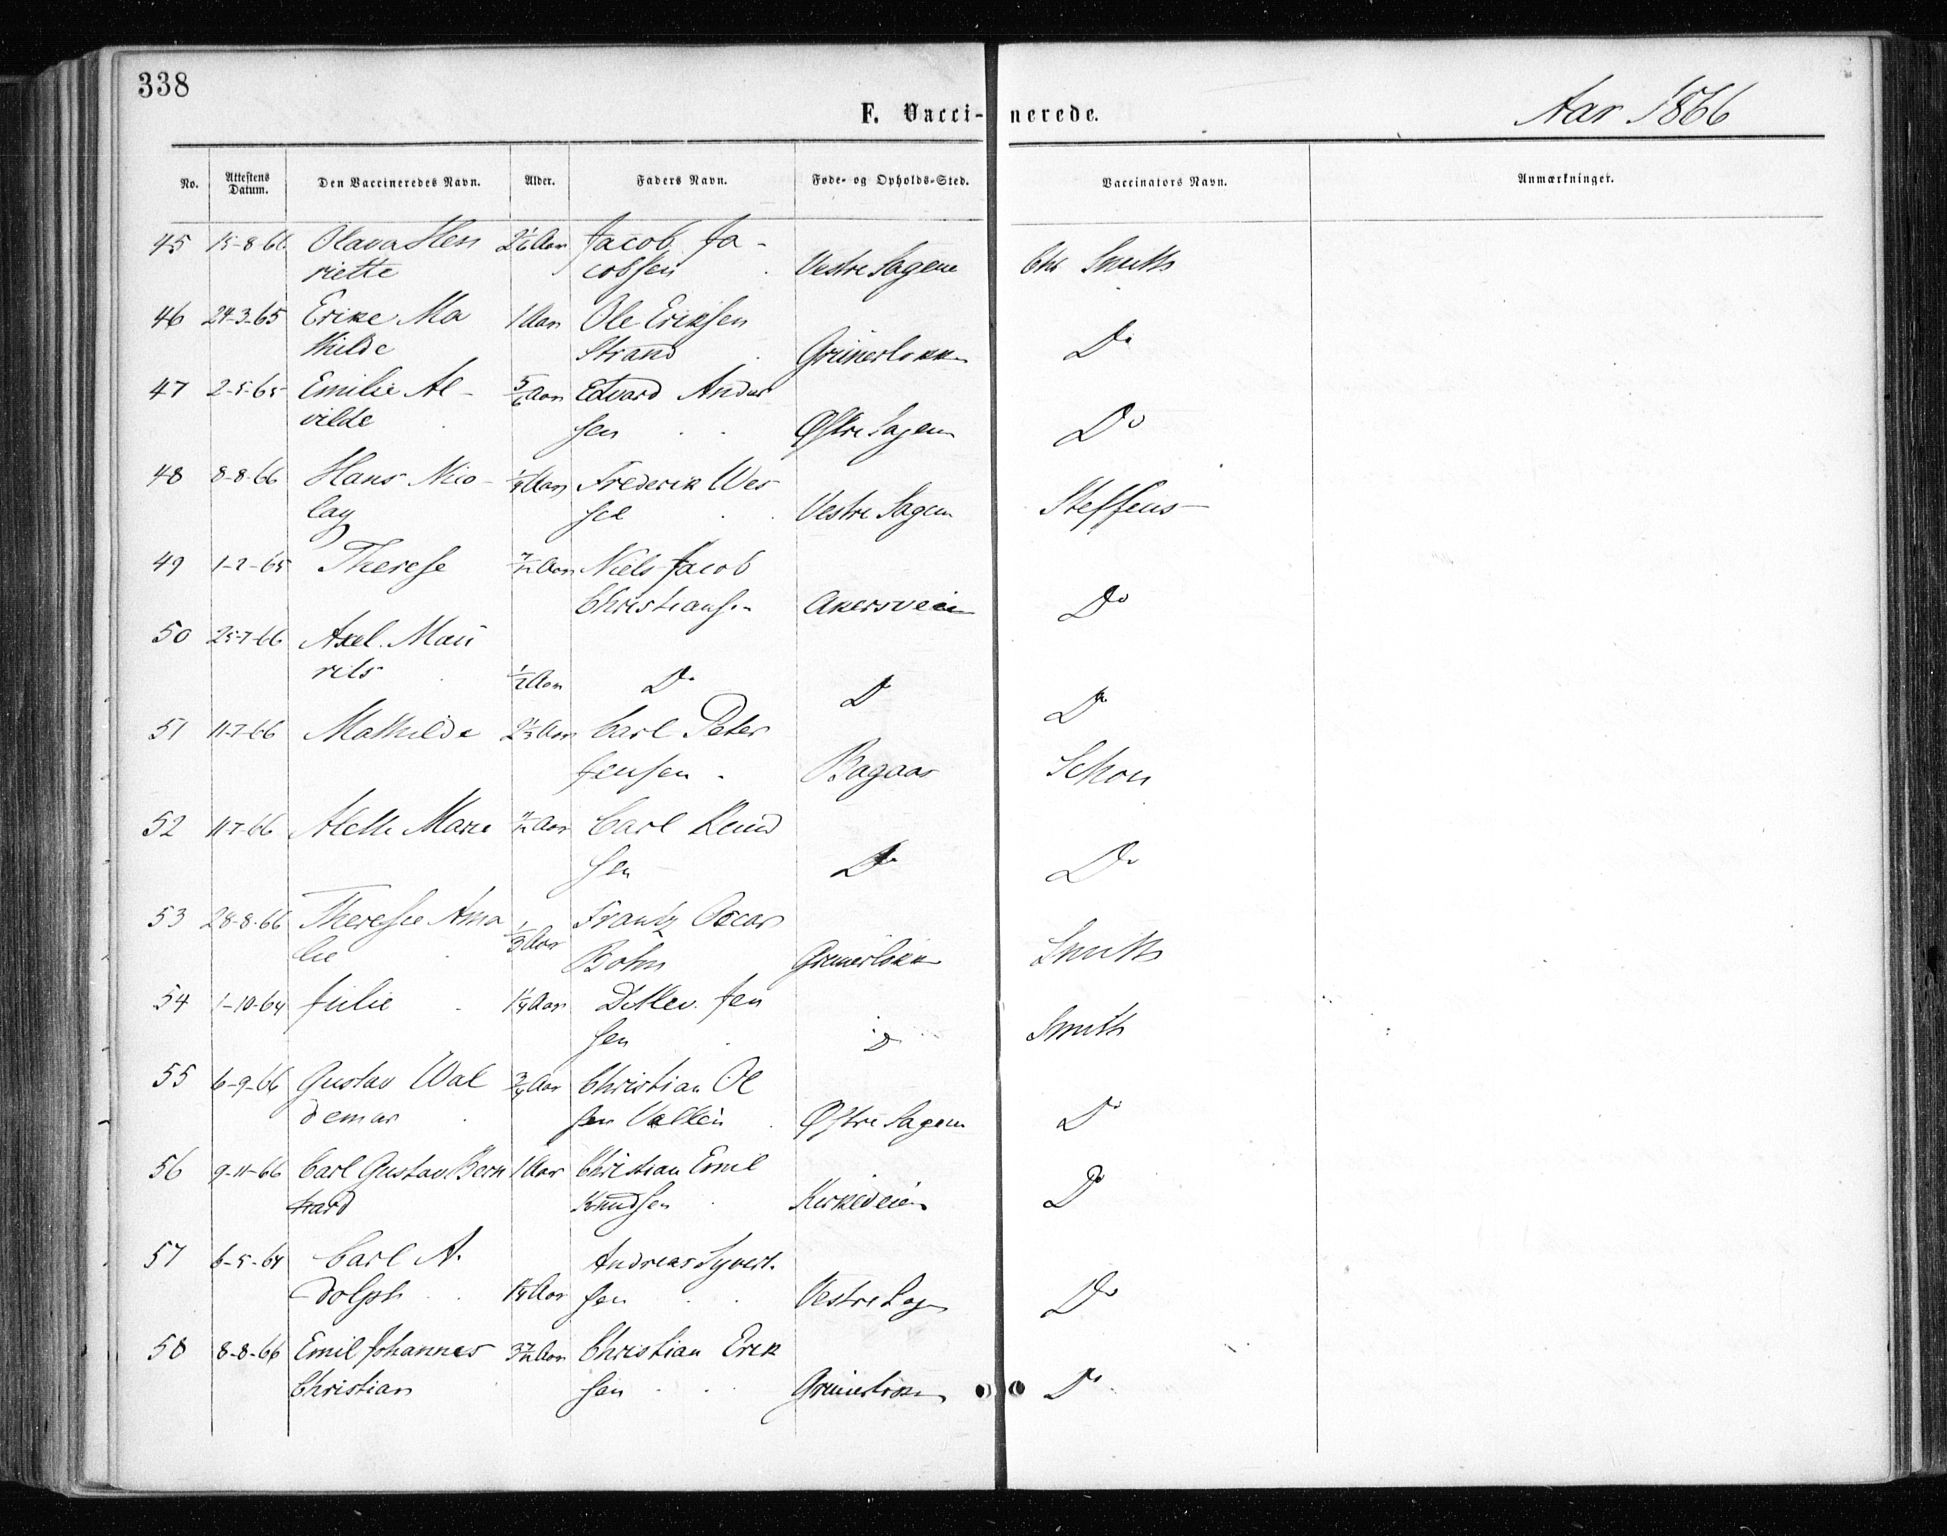 338
F. Vaccinerede.
Aar 1866
No. Attestens Datum. Den Vaccineredes Navn. Alder. Faders Navn. Føde- og Opholds-Sted. Vaccinators Navn. Anmærkninger.
45 15-8-66 Olava Hen 2 1/6 Aar Jacob Ja-
riette cobsen Vestre Sagene Chr Smith
46 24-3-65 Erike Ma 1 Aar Ole Eriksen
thilde Strand Grünerløkken Do
47 2-5-65 Emilie Al- 5/6 Aar Edvard Ander
vilde sen Østre Sagene Do
48 8-8-66 Hans Nico- Aar Frederik Wes
lay sel Vestre Sagene Steffens
49 1-2-65 Therese 7/12 Aar Niels Jacob
Christiansen Akersveien Do
50 25-7-66 Axel Mau
rits 1/2 Aar Do D Do
51 11-7-66 Mathilde 2 1/2 Aar Carl Peter
Jensen Bagaas Schou
52 11-7-66 Alette Marie 7/12 Aar Carl Knud
sen Do Do
53 28-8-66 Theresie Ama 1/3 Aar Frantz Oscar
lie Bohm Grünerløkk Smith
54 1-10-64 Julie 1 1/4 Aar Ditlev Jen
sen D Smith
55 6-9-66 Gustav Wal 3/4 Aar Christian Ol
demar sen Vallèn Østre Sagene Do
56 9-11-66 Carl Gustav Bern 1 Aar Christian Emil
hard Knudsen Kirkeveien Do
57 6-5-64 Carl A- Andreas Syvert-
dolph 1 1/4 Aar sen Vestre Sag Do
58 8-8-66 Emil Johannes 3 7/12 Aar Christian Erik
Christian sen Grünerløkken Do